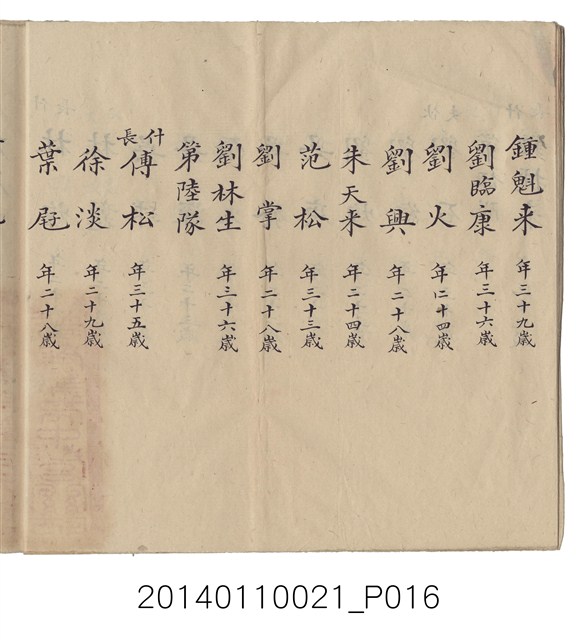 鍾魁来 年三十九歲
劉臨康 年三十六歲
劉火 年二十四歲
劉興 年二十八歲
朱天来 年二十四歲
范松 年三十三歲
劉掌 年二十八歲
劉林生 年三十六歲
第陸隊
什長 傅松 年三十五歲
徐淡 年二十九歲
葉 年二十八歲
20140110021_P016